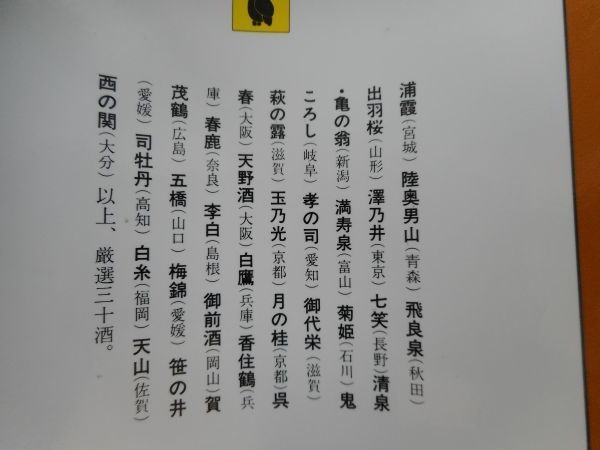 浦霞(宮城)陸奥男山(青森)飛良泉(秋田)
出羽桜(山形)澤乃井(東京)七笑(長野)清泉
・亀の翁(新潟)満寿泉(富山)菊姫(石川)鬼
ころし(岐阜)孝の司(愛知)御代栄(滋賀)
萩の露(滋賀)玉乃光(京都)月の桂(京都)呉
春(大阪)天野酒(大阪)白鷹(兵庫)香住鶴(兵
庫)春鹿(奈良)李白(島根)御前酒(岡山)賀
茂鶴(広島)五橋(山口)梅錦(愛媛)笹の井
(愛媛)司牡丹(高知)白糸(福岡)天山(佐賀)
西の関(大分)以上、厳選三十酒。